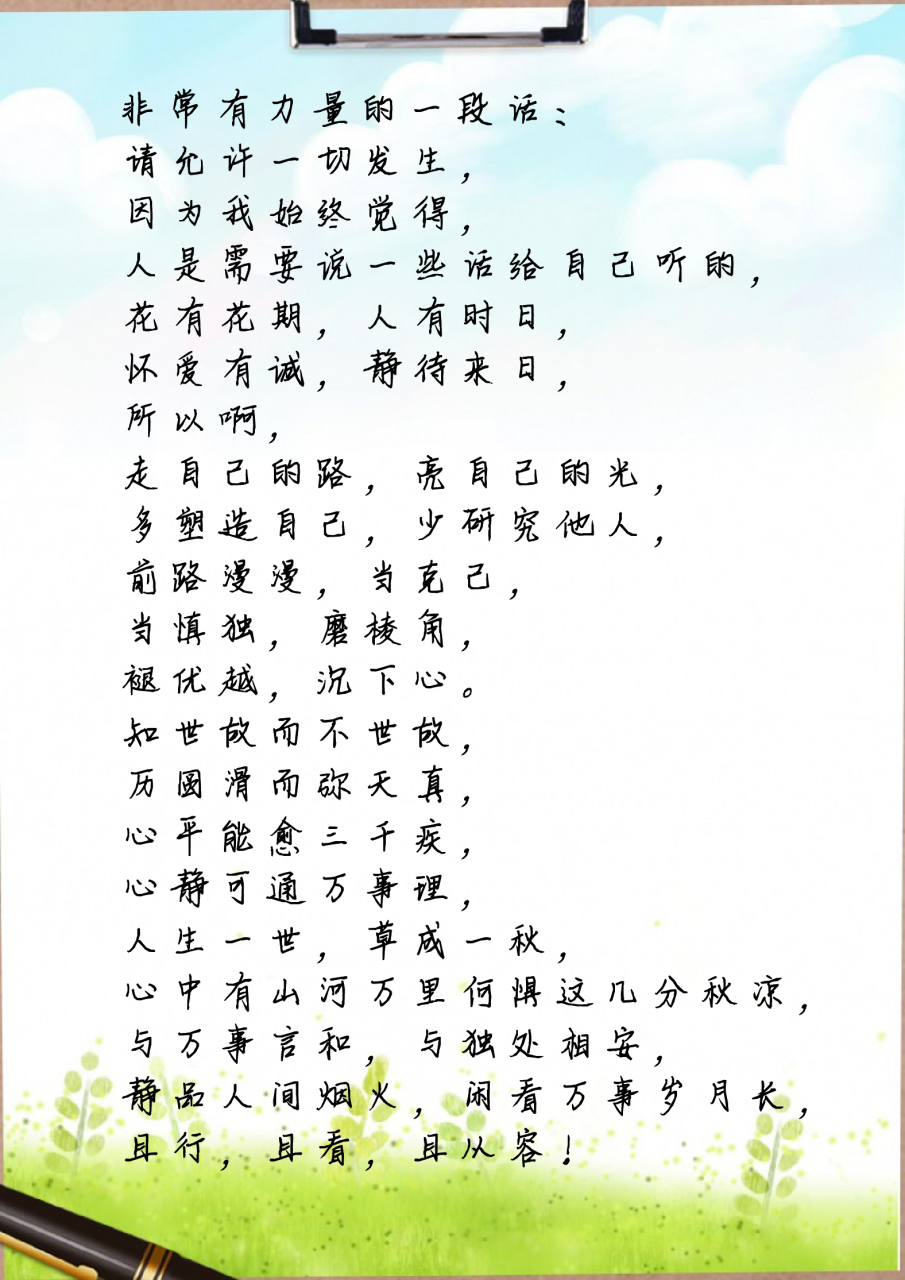 非常有力量的一段话：
请允许一切发生，
因为我始终觉得，
人是需要说一些话给自己听的，
花有花期，人有时日，
怀爱有诚，静待来日，
所以啊，
走自己的路，亮自己的光，
多塑造自己，少研究他人，
前路漫漫，当克己，
当慎独，磨棱角，
褪优越，沉下心。
知世故而不世故，
历圆滑而弥天真，
心平能愈三千疾，
心静可通万事理，
人生一世，草成一秋，
心中有山河万里何惧这几分秋凉，
与万事言和，与独处相安，
静品人间烟火，闲看万事岁月长，
且行，且看，且从容！